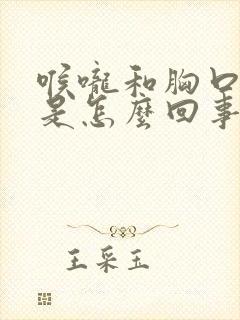 喉嚨和胸口
是怎麼回事
王采玉